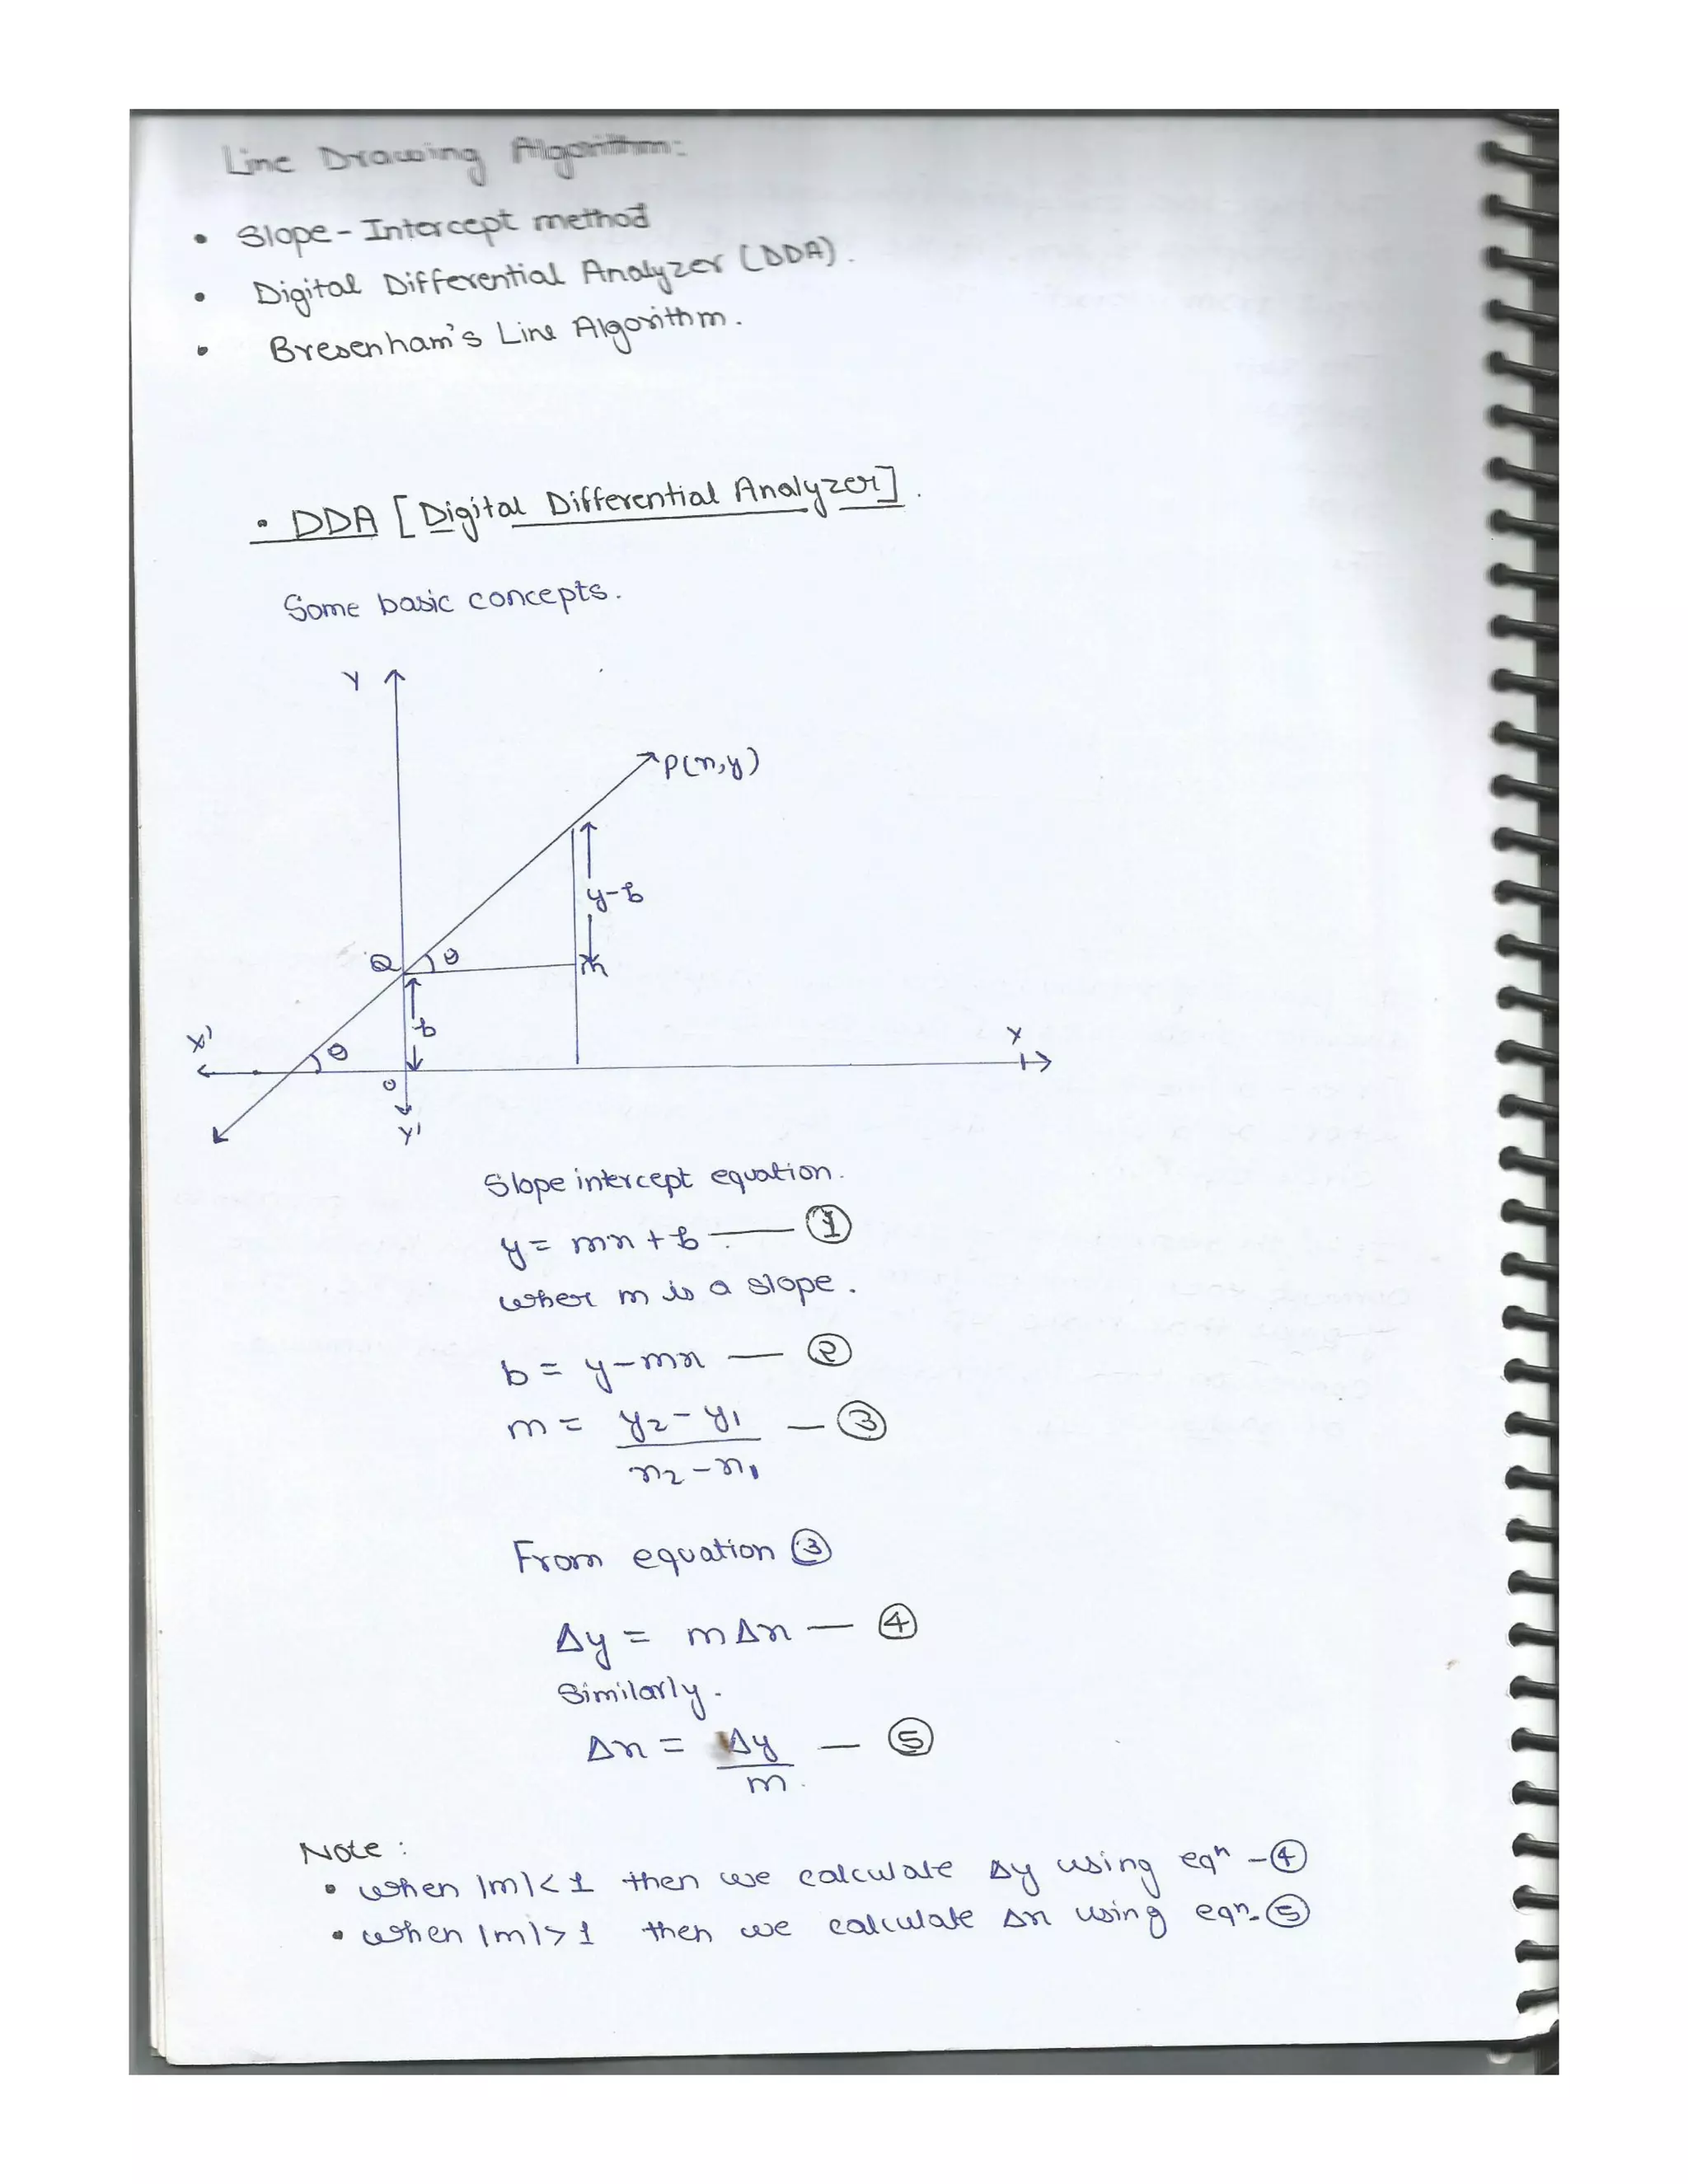 Line Drawing Algorithm:
• Slope-Intercept method
• Digital Differential Analyzer (DDA).
• Bresenham's Line Algorithm.
• DDA [Digital Differential Analyzer].
Some basic concepts.
Y
P(x,y)
y-b
Q θ
M
b
X' θ
X
O
Y'
Slope intercept equation.
y = mx + b — ①
wher m is a slope.
b = y-mx — ②
m = y2-y1 — ③
x2-x1
From equation ③
Δy = mΔx — ④
Similarly.
Δx = Δy — ⑤
m.
Note :
• when |m|<1 then we calculate Δy using eqn -④
• when |m|>1 then we calculate Δx using eqn-⑤